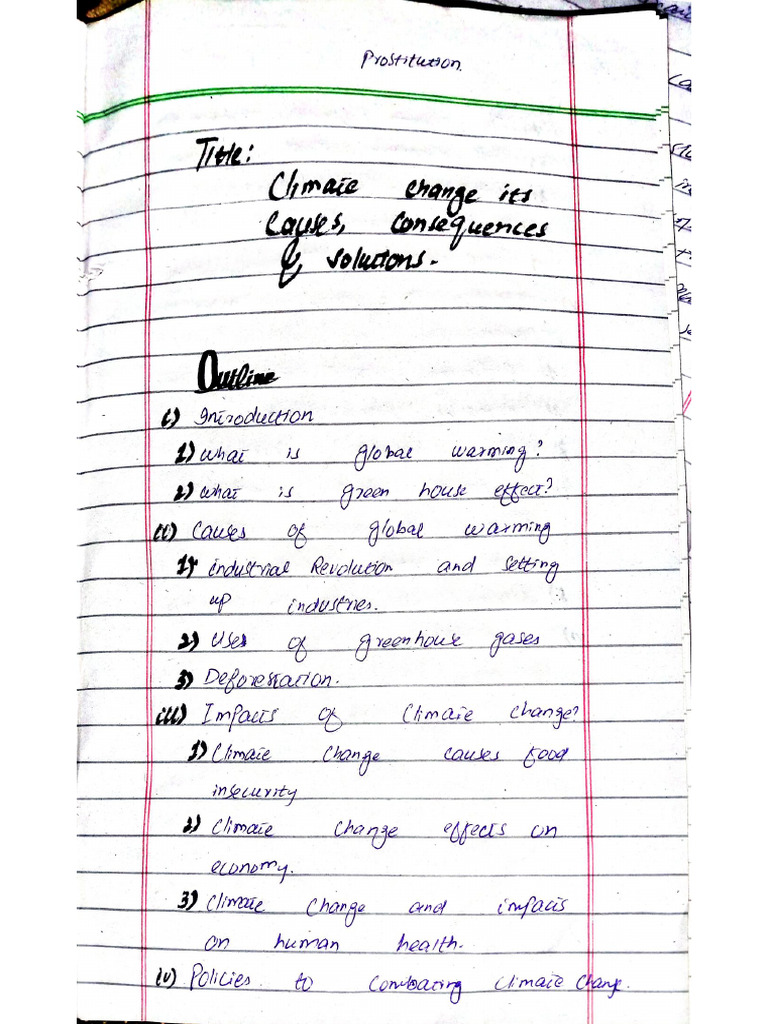 Prostitution.
Title:
Climate change its
Causes, Consequences
& solutions.
Outline
i) Introduction
1) What is global warming?
2) What is green house effect?
ii) Causes of global warming
1) industrial Revolution and setting
up industries.
2) Uses of greenhouse gases
3) Deforestation.
iii) Impacts of Climate change?
1) Climate change causes food
insecurity
2) Climate change effects on
economy.
3) Climate change and impacts
on human health.
iv) Policies to combating Climate change.